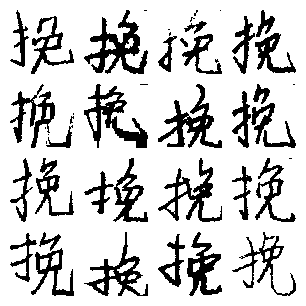 挽挽挽挽
挽挽挽挽
挽挽挽挽
挽挽挽挽